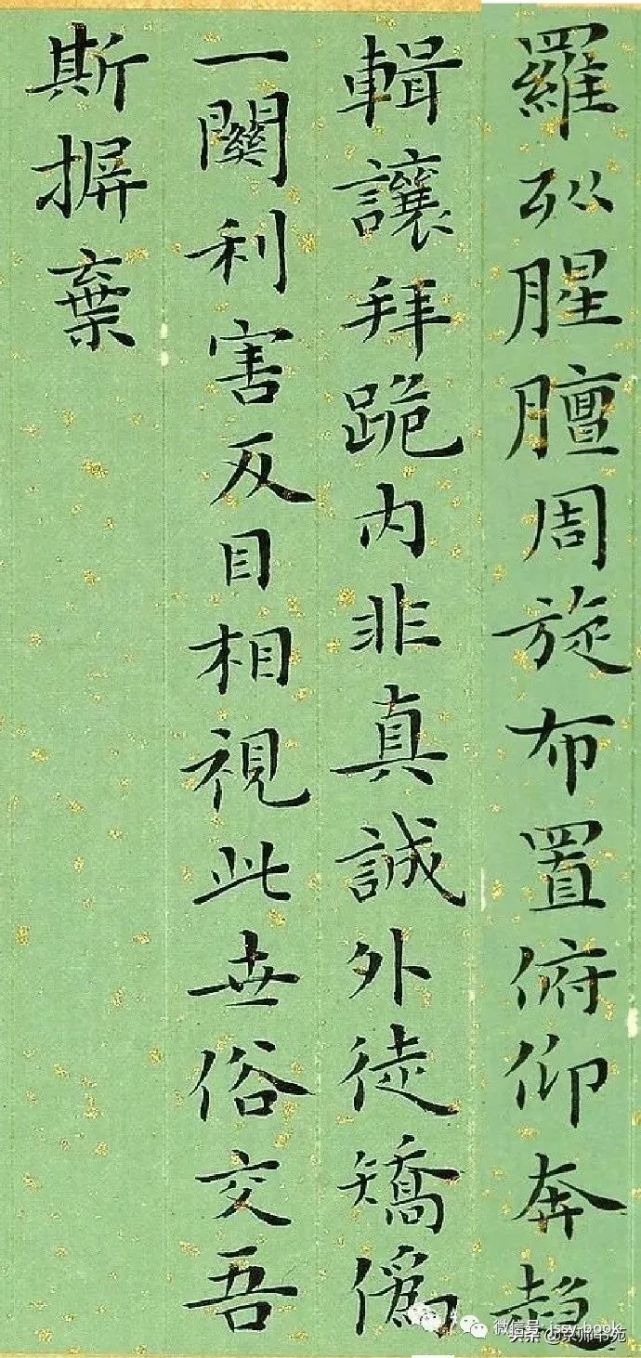 羅列腥膻周旋布置俯仰奔趨
輯讓拜跪内非真誠外徒矯偽
一關利害反目相視此世俗交吾
斯摒棄
微信号: jssy-book
头条 @京师书苑